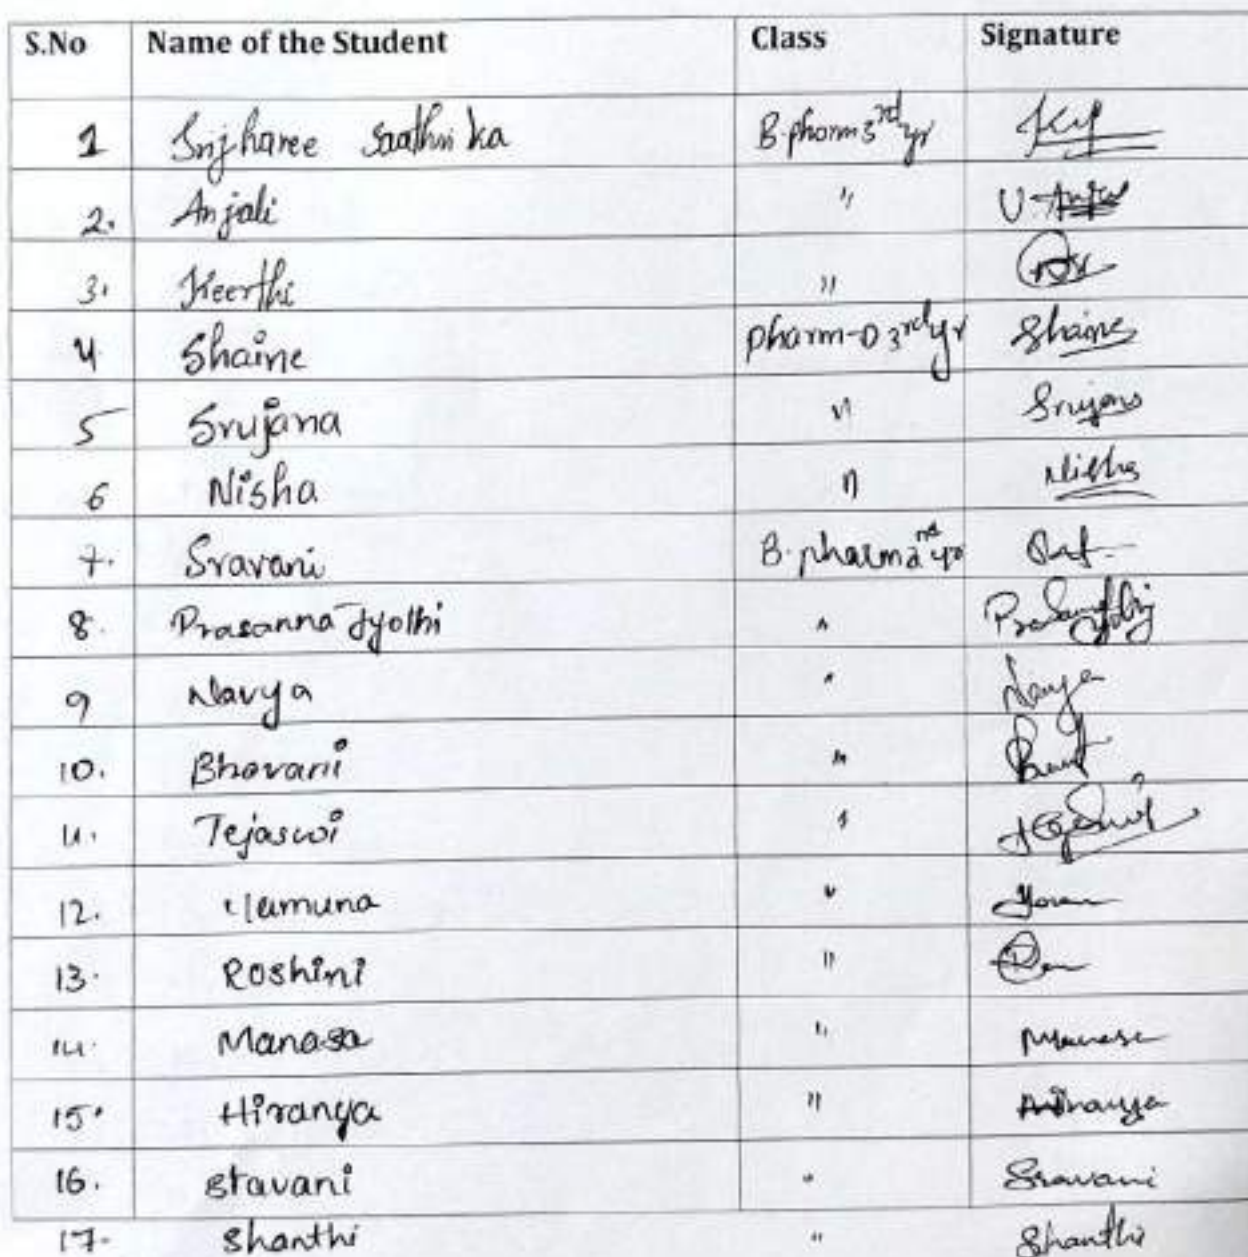 S.No Name of the Student Class Signature
1 Srijharee Saathvika B.pharm 3rd yr
2. Anjali " U. Anjali
3. Keerthi "
4 Shaine pharm-D 3rd yr Shaine
5 Srujana " Srujana
6 Nisha " Nisha
7. Sravani B.pharm 2nd yr
8. Prasanna Jyothi "
9 Navya " Navya
10. Bhavani "
11. Tejaswi " Tejaswi
12. Yamuna "
13. Roshini "
14. Manasa " Manasa
15. Hiranya " Hiranya
16. Sravani " Sravani
17. Shanthi " Shanthi